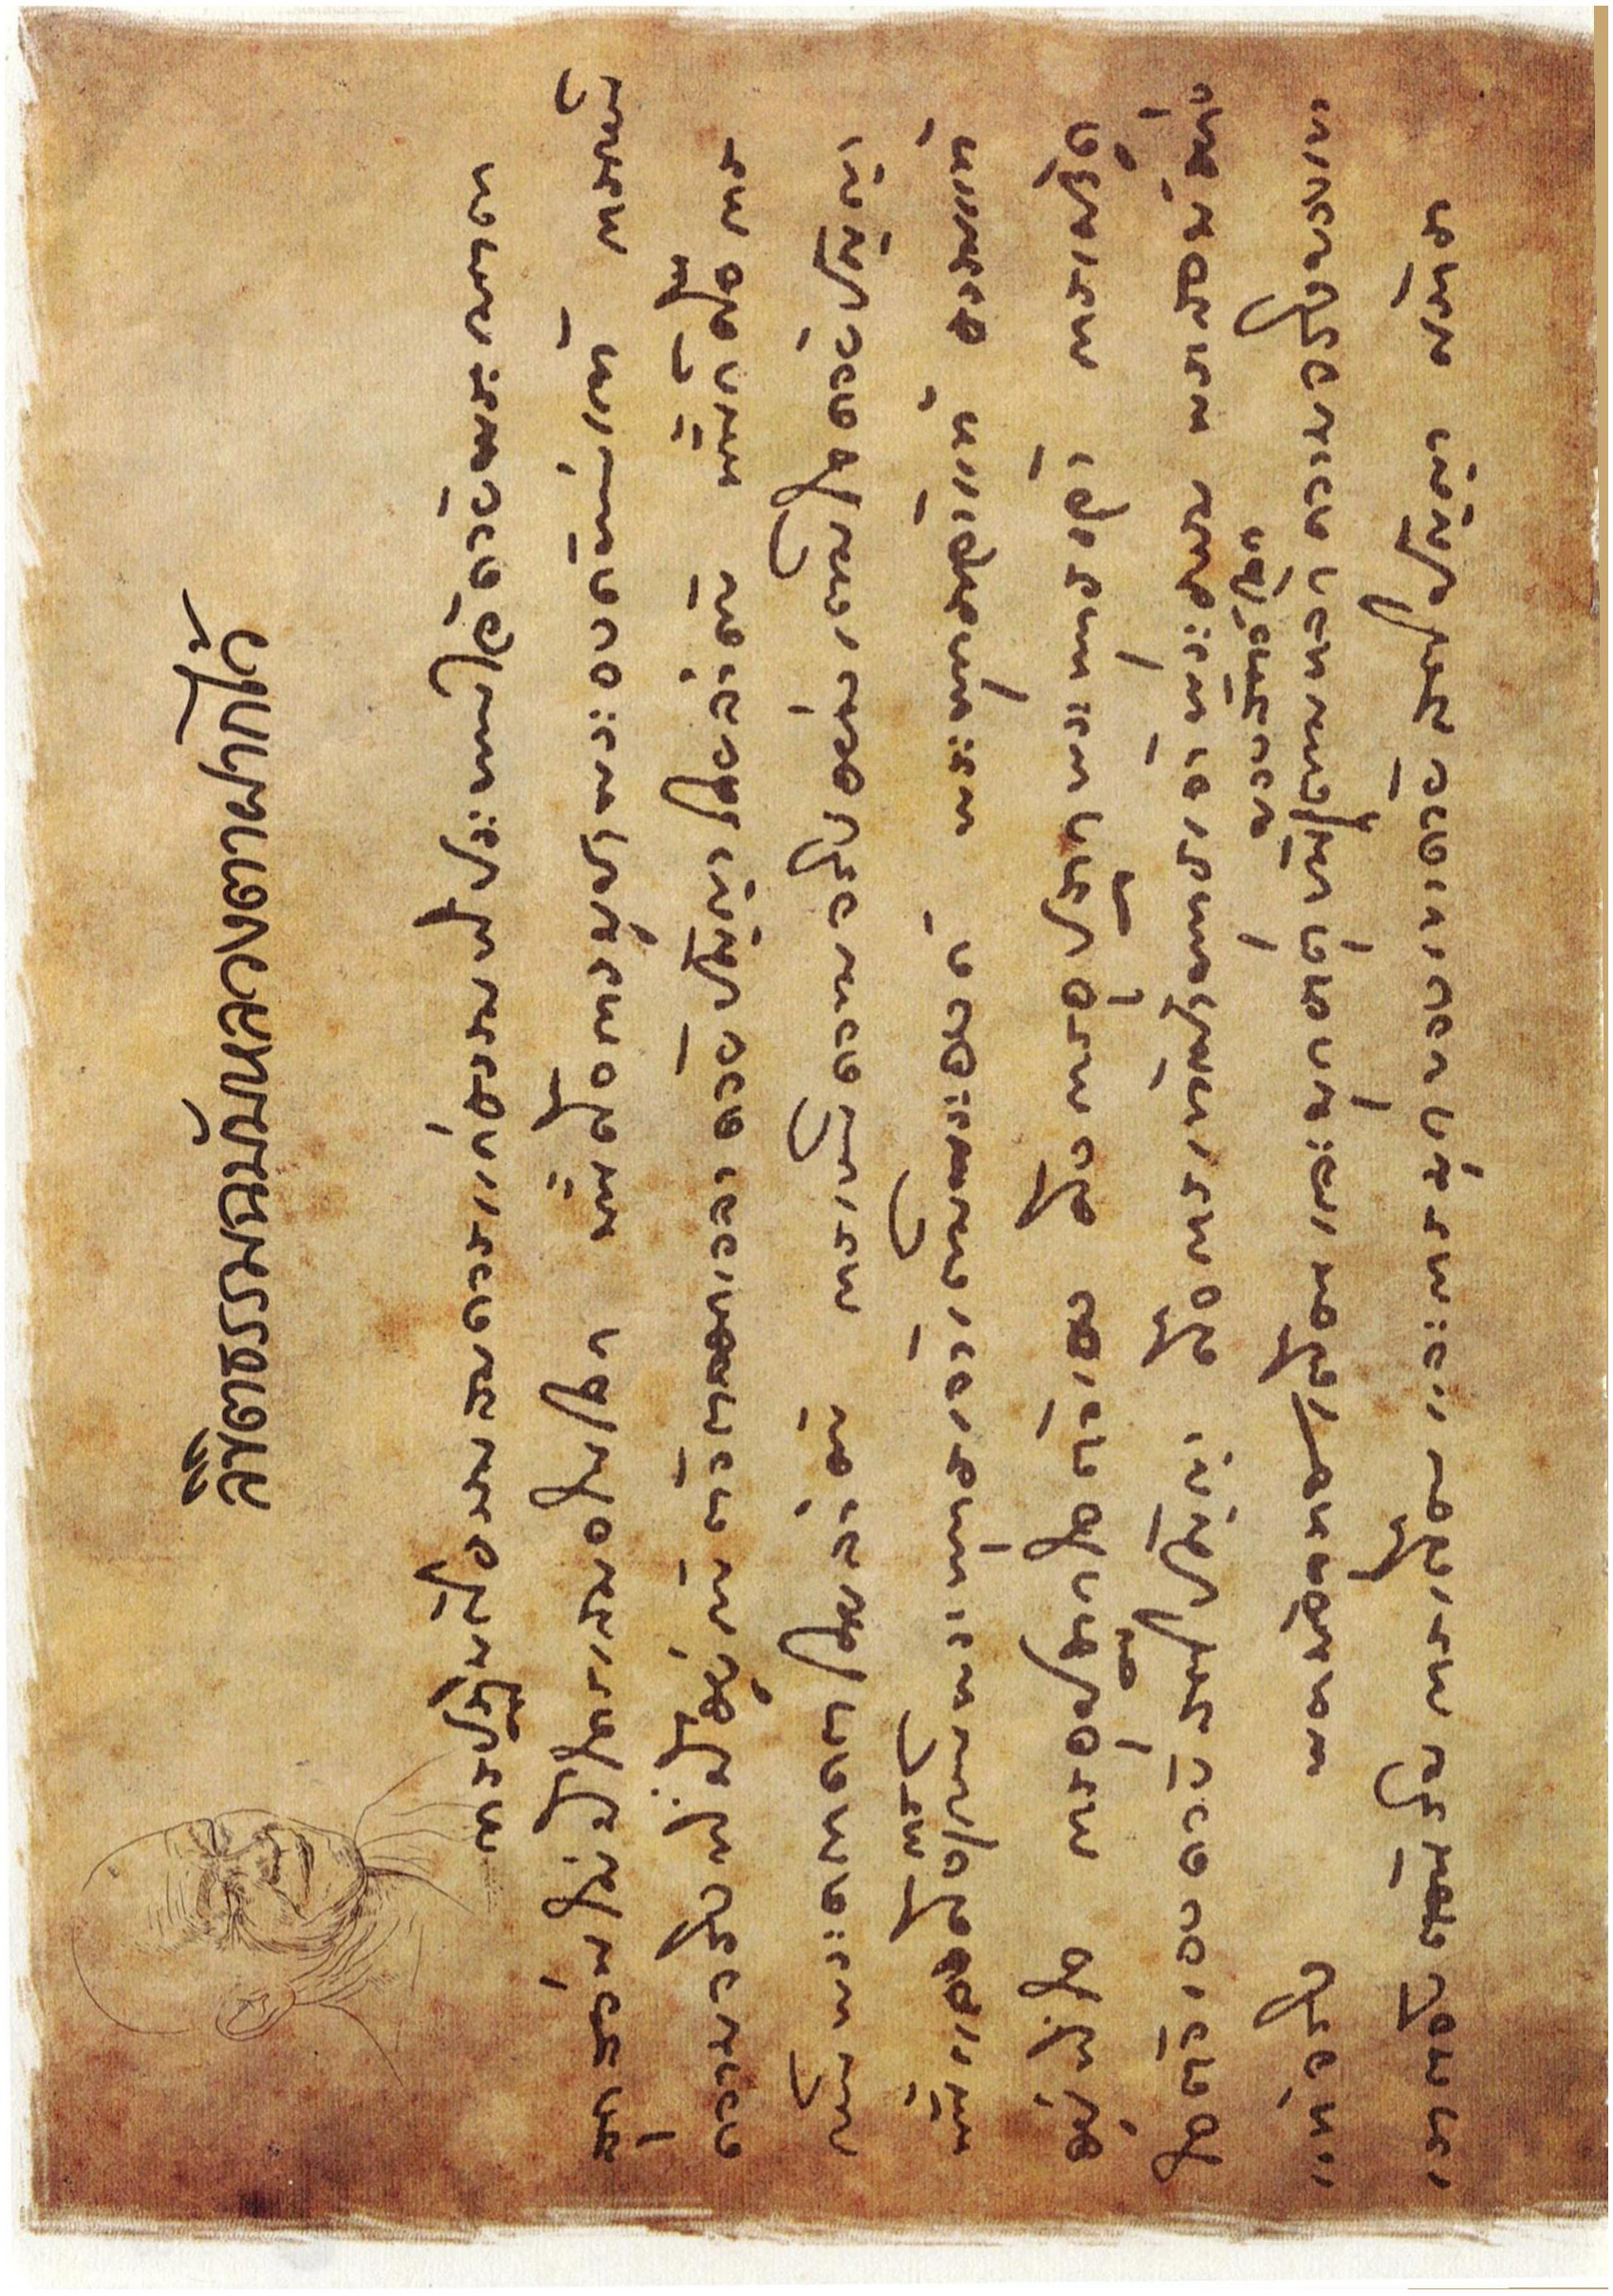 ลิขิตธรรมฉบับหลวงตาฝากไว้
การปฏิบัติด้วยความสมควรแก่ธรรมที่ประทานไว้ด้วยพระเมตตา
สุดส่วนไม่มีใครเสมอในโลก นี้คือการบูชาพระองค์แท้ การเห็น
ความจริงที่มีอยู่กับตัวตลอดเวลาด้วยปัญญาโดยลำดับ นี้ก็คือการ
เห็นพระตถาคตโดยลำดับ การเห็นความจริงอย่างเต็มใจด้วยปัญญา
นี้แลคือการเห็นพระพุทธเจ้าเต็มพระองค์ พระพุทธเจ้าแท้ ธรรมแท้
อยู่ที่ใจ การอุปัฏฐากใจตัวเอง คือการอุปัฏฐากพระพุทธเจ้า การเฝ้าดู
ใจตัวเองด้วยสติปัญญา คือการเข้าเฝ้าพระพุทธเจ้า พระธรรม พระสงฆ์ อย่าง
แท้จริง พญามัจจุราชเตือนและบุกธาตุขันธ์ของสัตว์โลกตามหลักความจริงของตน
เราต้องต้อนรับการเตือนและการบุกของเขาด้วยสติปัญญา ศรัทธา